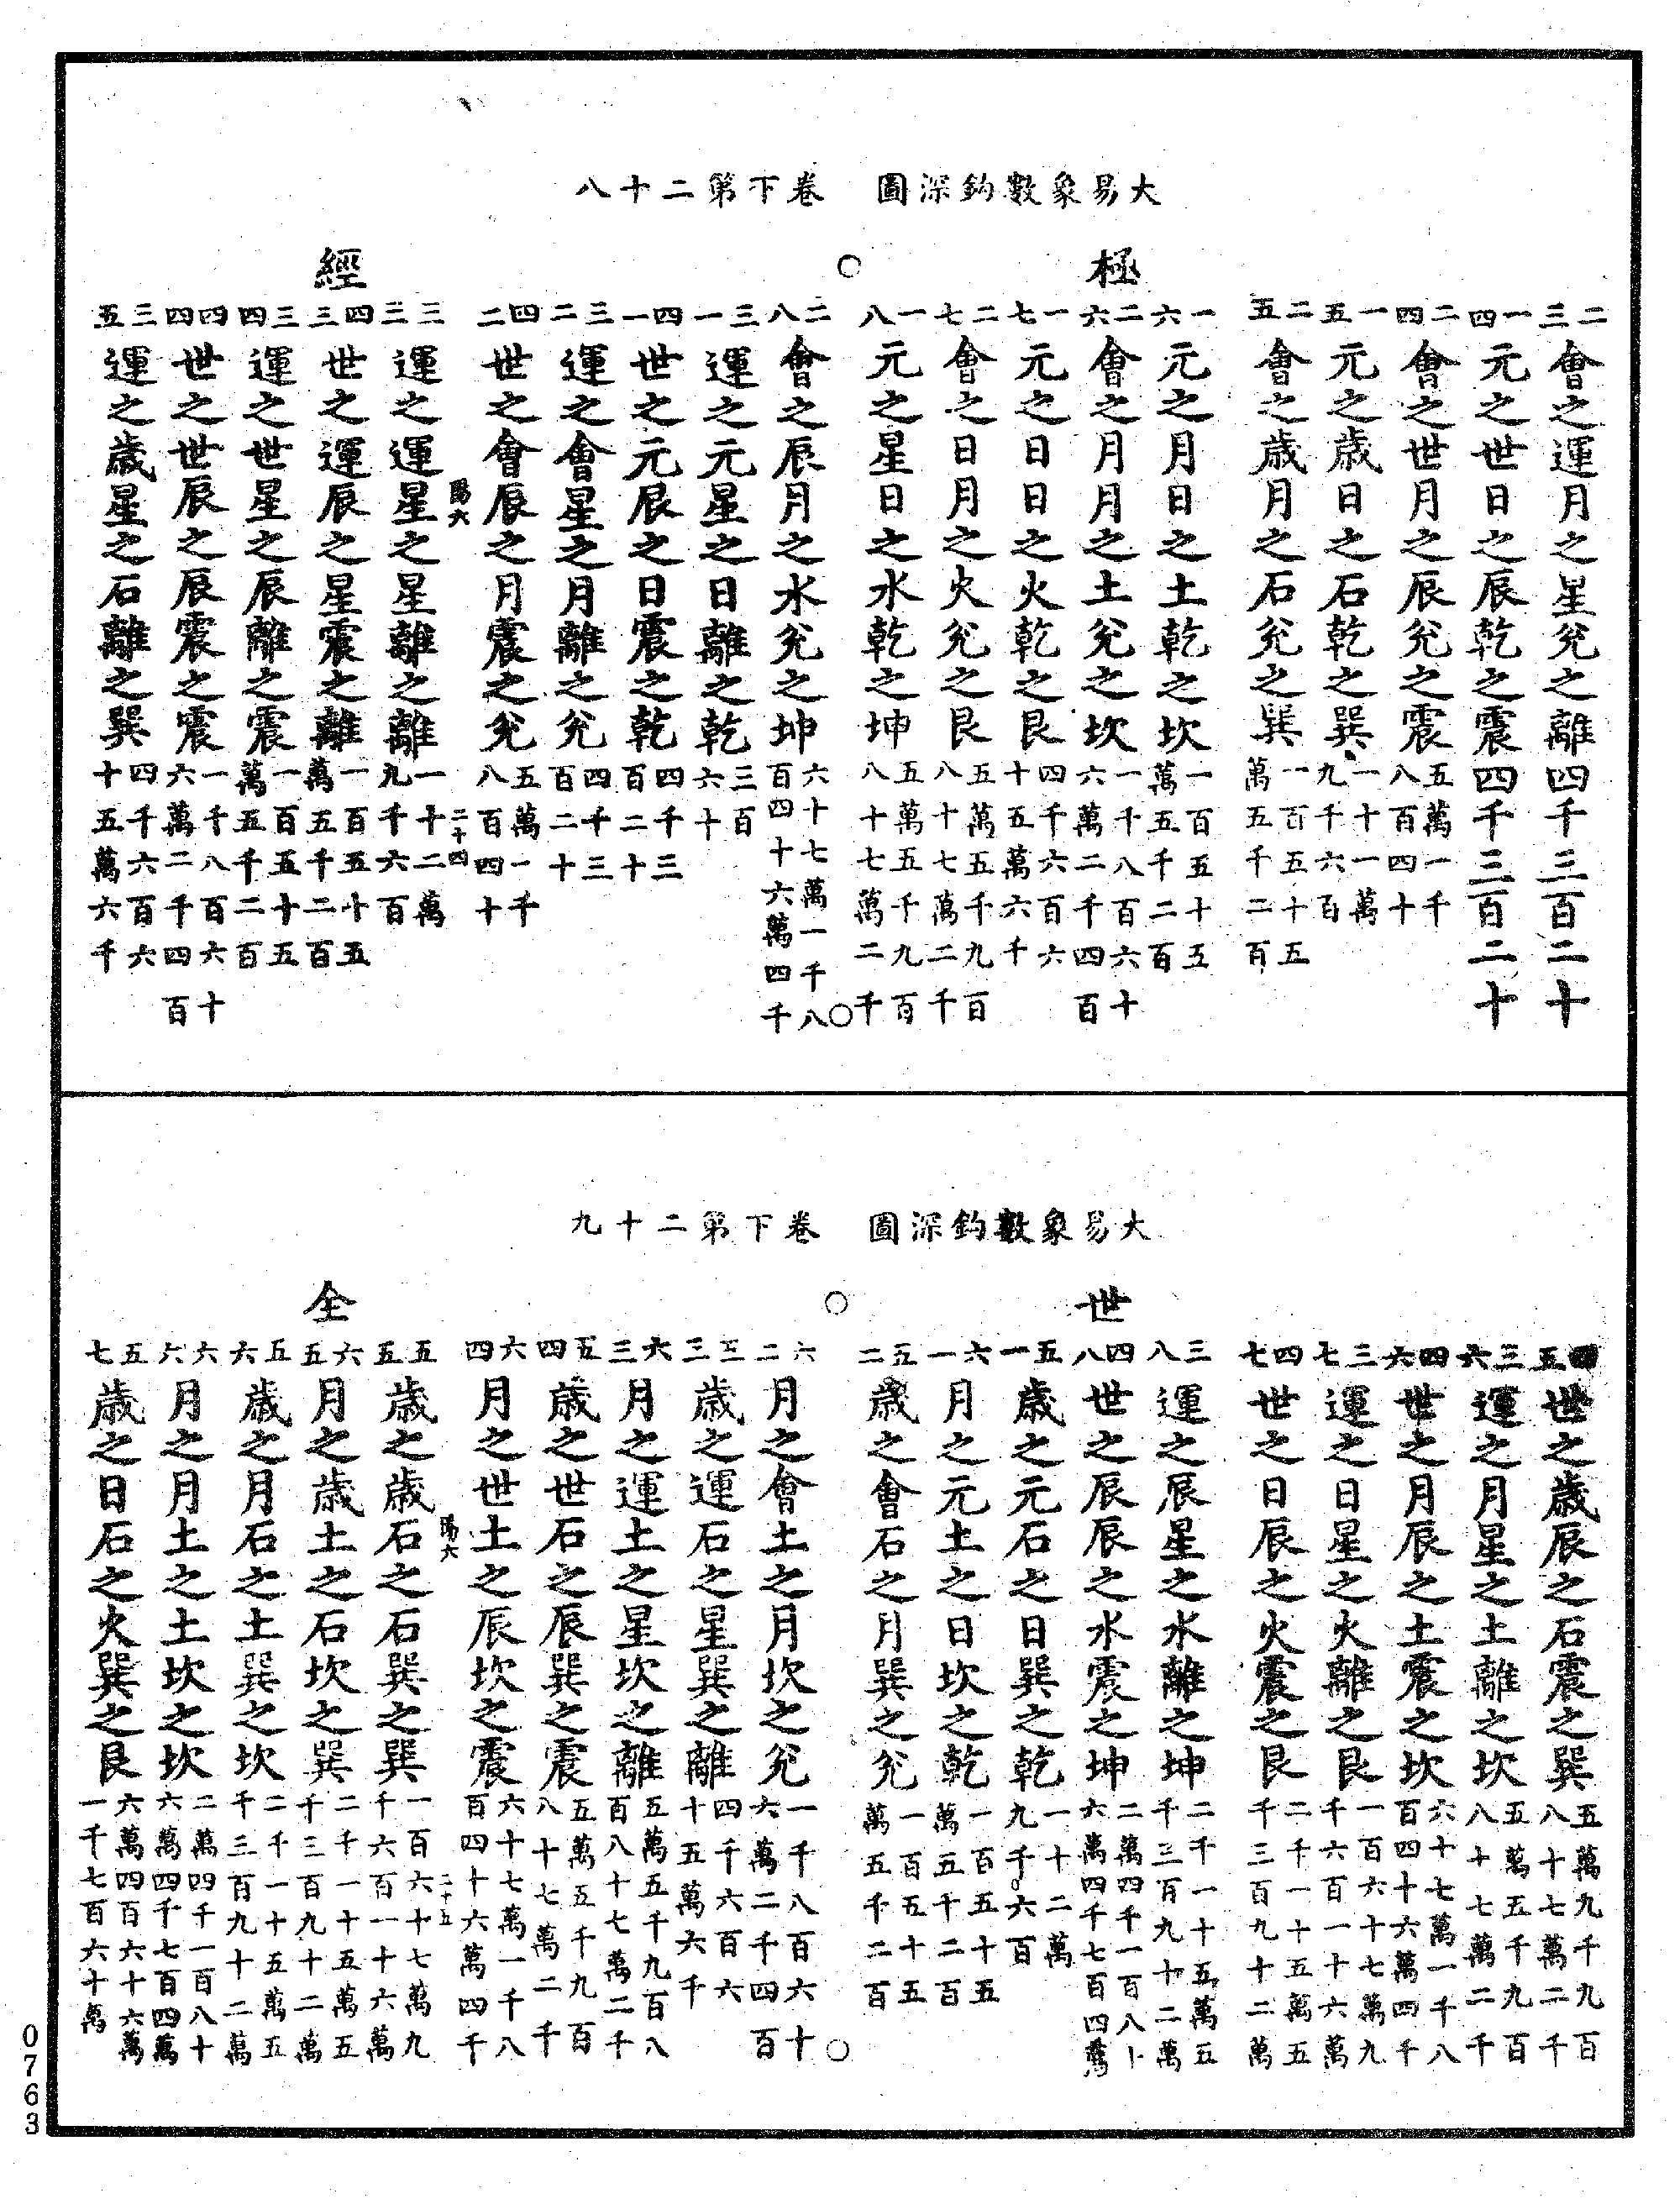 大易象數鈎深圖　卷下第二十八
極　○　經
二三會之運月之星兊之離四千三百二十
一四元之世日之辰乾之震四千三百二十
二四會之世月之辰兊之震五萬一千八百四十
一五元之歲日之石乾之巽一十一萬九千六百
二五會之歲月之石兊之巽一百五十五萬五千二百
一六元之月日之土乾之坎一百五十五萬五千二百
二六會之月月之土兊之坎一千八百六十六萬二千四百
一七元之日日之火乾之艮四千六百六十五萬六千
二七會之日月之火兊之艮五萬五千九百八十七萬二千
一八元之星日之水乾之坤五萬五千九百八十七萬二千
○
二八會之辰月之水兊之坤六十七萬一千八百四十六萬四千
三一運之元星之日離之乾三百六十
四一世之元辰之日震之乾四千三百二十
三二運之會星之月離之兊四千三百二十
四二世之會辰之月震之兊五萬一千八百四十
陽六　二十四
三三運之運星之星離之離一十二萬九千六百
四三世之運辰之星震之離一百五十五萬五千二百
三四運之世星之辰離之震一百五十五萬五千二百
四四世之世辰之辰震之震一千八百六十六萬二千四百
三五運之歲星之石離之巽四千六百六十五萬六千
大易象數鈎深圖　卷下第二十九
世　○　全
四五世之歲辰之石震之巽五萬九千九百八十七萬二千
三六運之月星之土離之坎五萬五千九百八十七萬二千
四六世之月辰之土震之坎六十七萬一千八百四十六萬四千
三七運之日星之火離之艮一百六十七萬九千六百一十六萬
四七世之日辰之火震之艮二千一十五萬五千三百九十二萬
三八運之辰星之水離之坤二千一十五萬五千三百九十二萬
四八世之辰辰之水震之坤二萬四千一百八十六萬四千七百四萬
五一歲之元石之日巽之乾一十二萬九千六百
六一月之元土之日坎之乾一百五十五萬五千二百
五二歲之會石之月巽之兊一百五十五萬五千二百
○
六二月之會土之月坎之兊一千八百六十六萬二千四百
五三歲之運石之星巽之離四千六百六十五萬六千
六三月之運土之星坎之離五萬五千九百八十七萬二千
五四歲之世石之辰巽之震五萬五千九百八十七萬二千
六四月之世土之辰坎之震六十七萬一千八百四十六萬四千
陽六　二十五
五五歲之歲石之石巽之巽一百六十七萬九千六百一十六萬
六五月之歲土之石坎之巽二千一十五萬五千三百九十二萬
五六歲之月石之土巽之坎二千一十五萬五千三百九十二萬
六六月之月土之土坎之坎二萬四千一百八十六萬四千七百四萬
五七歲之日石之火巽之艮六萬四百六十六萬一千七百六十萬
0763